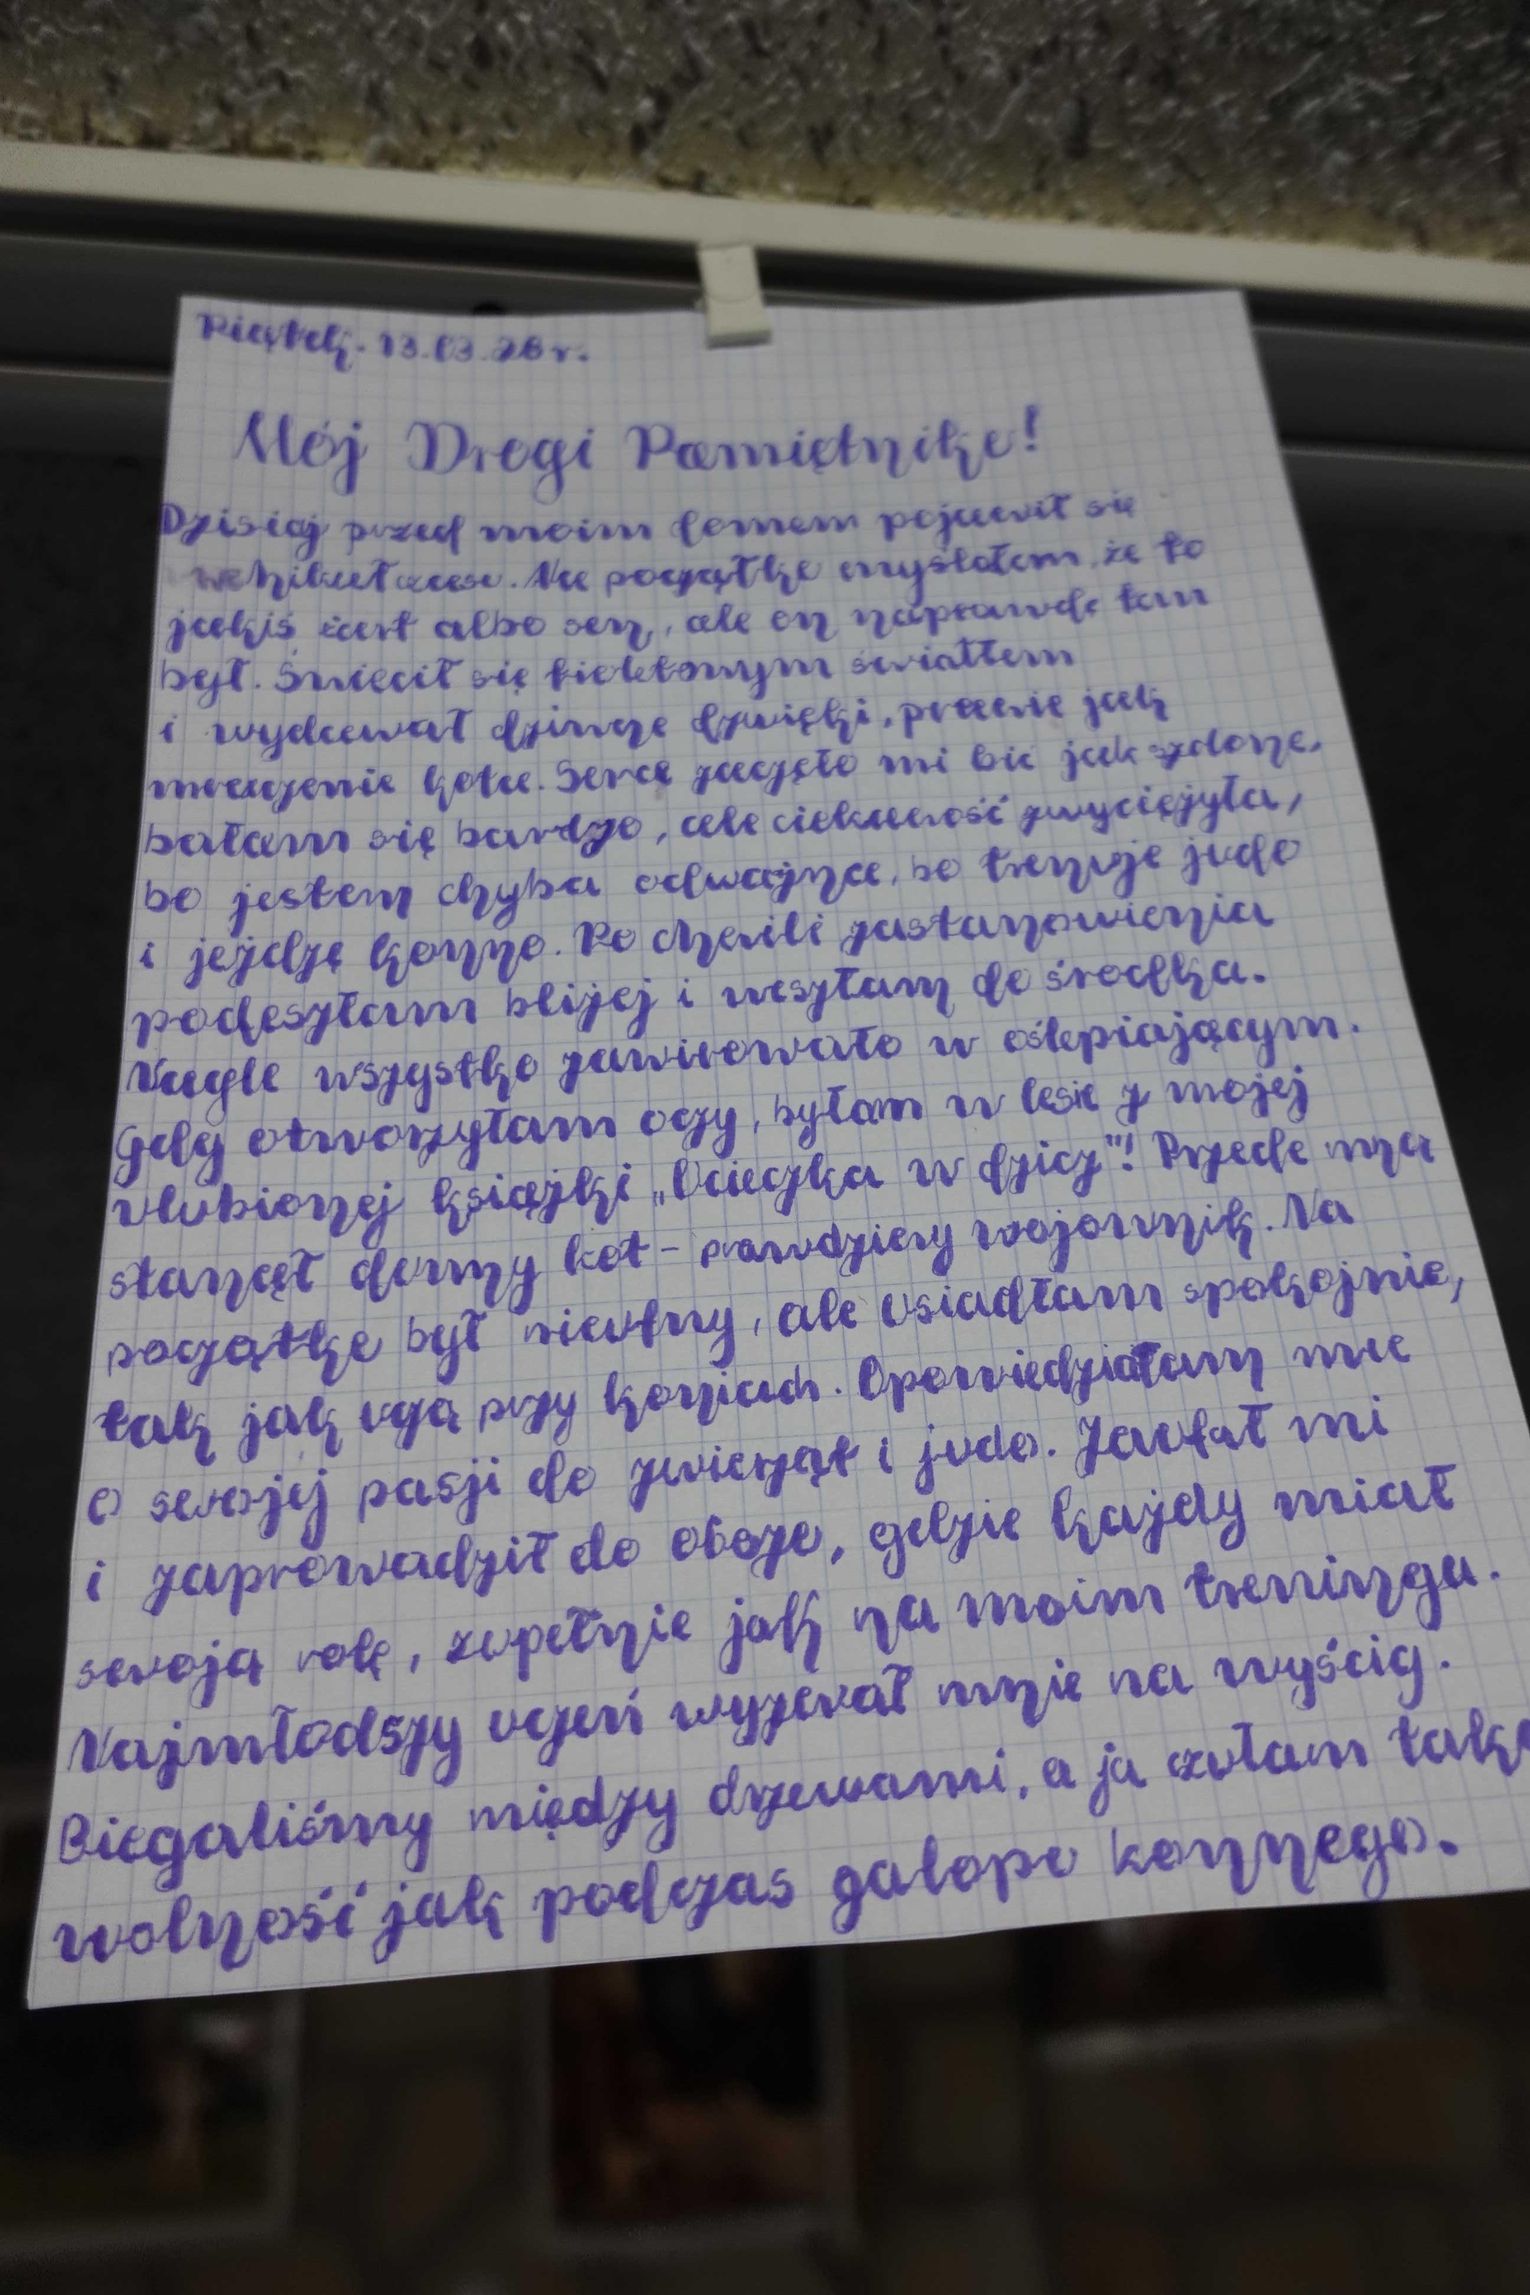 Piątek. 13.03.26 r.
Mój Drogi Pamiętniku!
Dzisiaj przed moim domem pojawił się
wehikuł czasu. Na początku myślałam, że to
jakiś żart albo sen, ale on naprawdę tam
był. Świecił się fioletowym światłem
i wydawał dziwne dźwięki, prawie jak
mruczenie kota. Serce zaczęło mi bić jak szalone,
bałam się bardzo, ale ciekawość zwyciężyła,
bo jestem chyba odważna, bo trenuje judo
i jeżdżę konno. Po chwili zastanowienia
podeszłam bliżej i weszłam do środka.
Nagle wszystko zawirowało w oślepiającym.
Gdy otworzyłam oczy, byłam w lesie z mojej
ulubionej książki „Ucieczka w dzicz"! Przede mną
stanął dumny kot - prawdziwy wojownik. Na
początku był nieufny, ale usiadłam spokojnie,
tak jak uczą przy koniach. Opowiedziałam mu
o swojej pasji do zwierząt i judo. Zaufał mi
i zaprowadził do obozu, gdzie każdy miał
swoją rolę, zupełnie jak na moim treningu.
Najmłodszy uczeń wyzwał mnie na wyścig.
Biegaliśmy między drzewami, a ja czułam taką
wolność jak podczas galopu konnego.